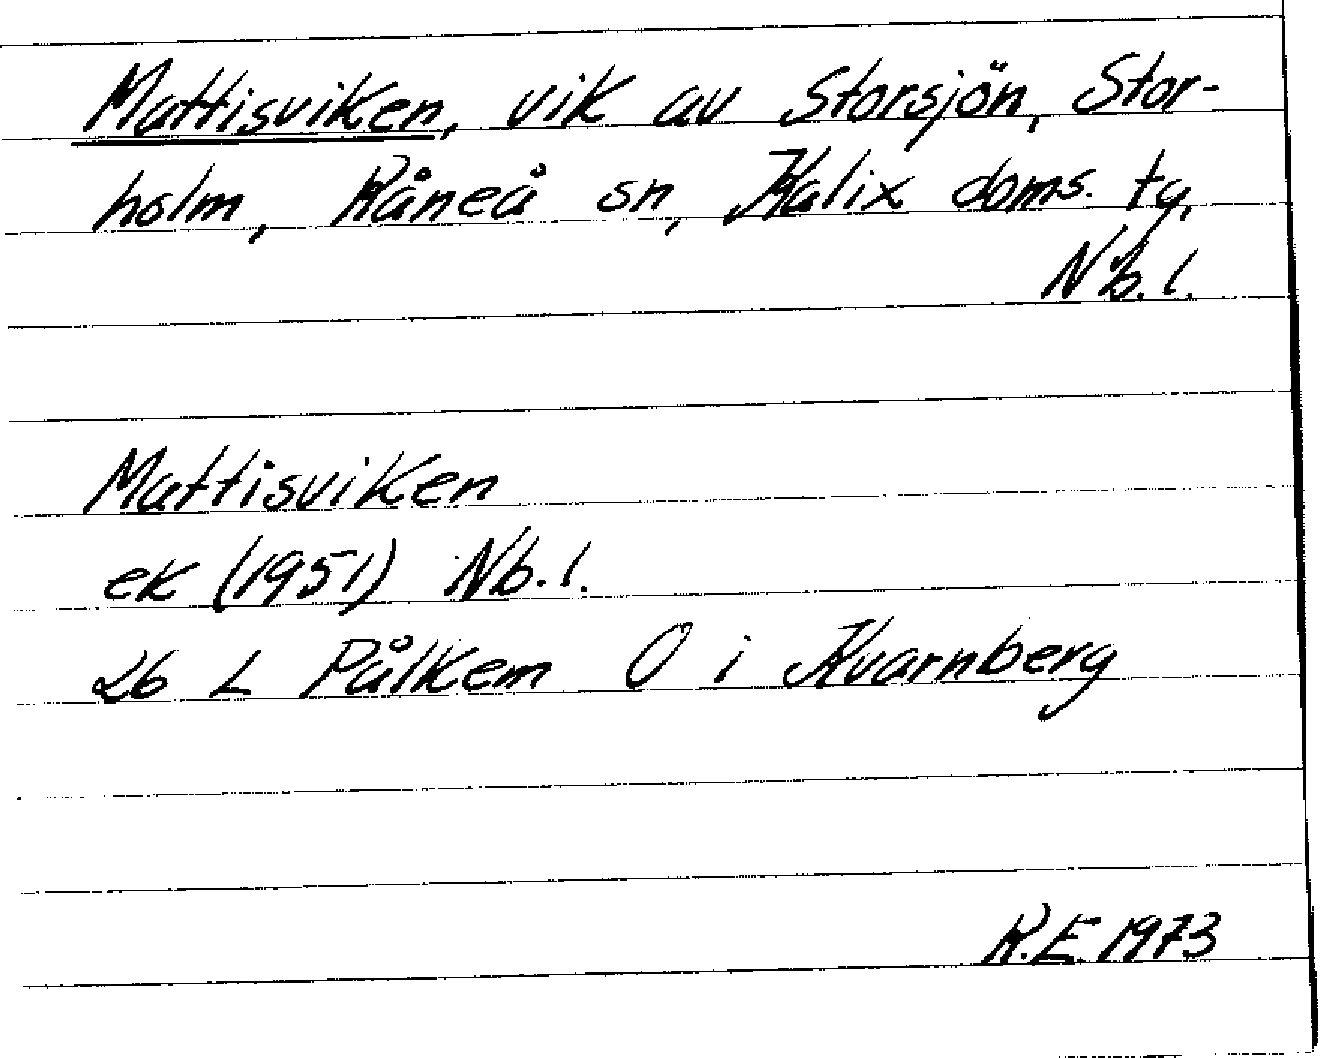 Mattisviken, vik av Storsjön, Stor-
holm, Råneå sn, Kalix doms. tg,
Nb. l.
Mattisviken
ek (1951) Nb. l.
26 L Pålkem O i Kvarnberg
R.E. 1973